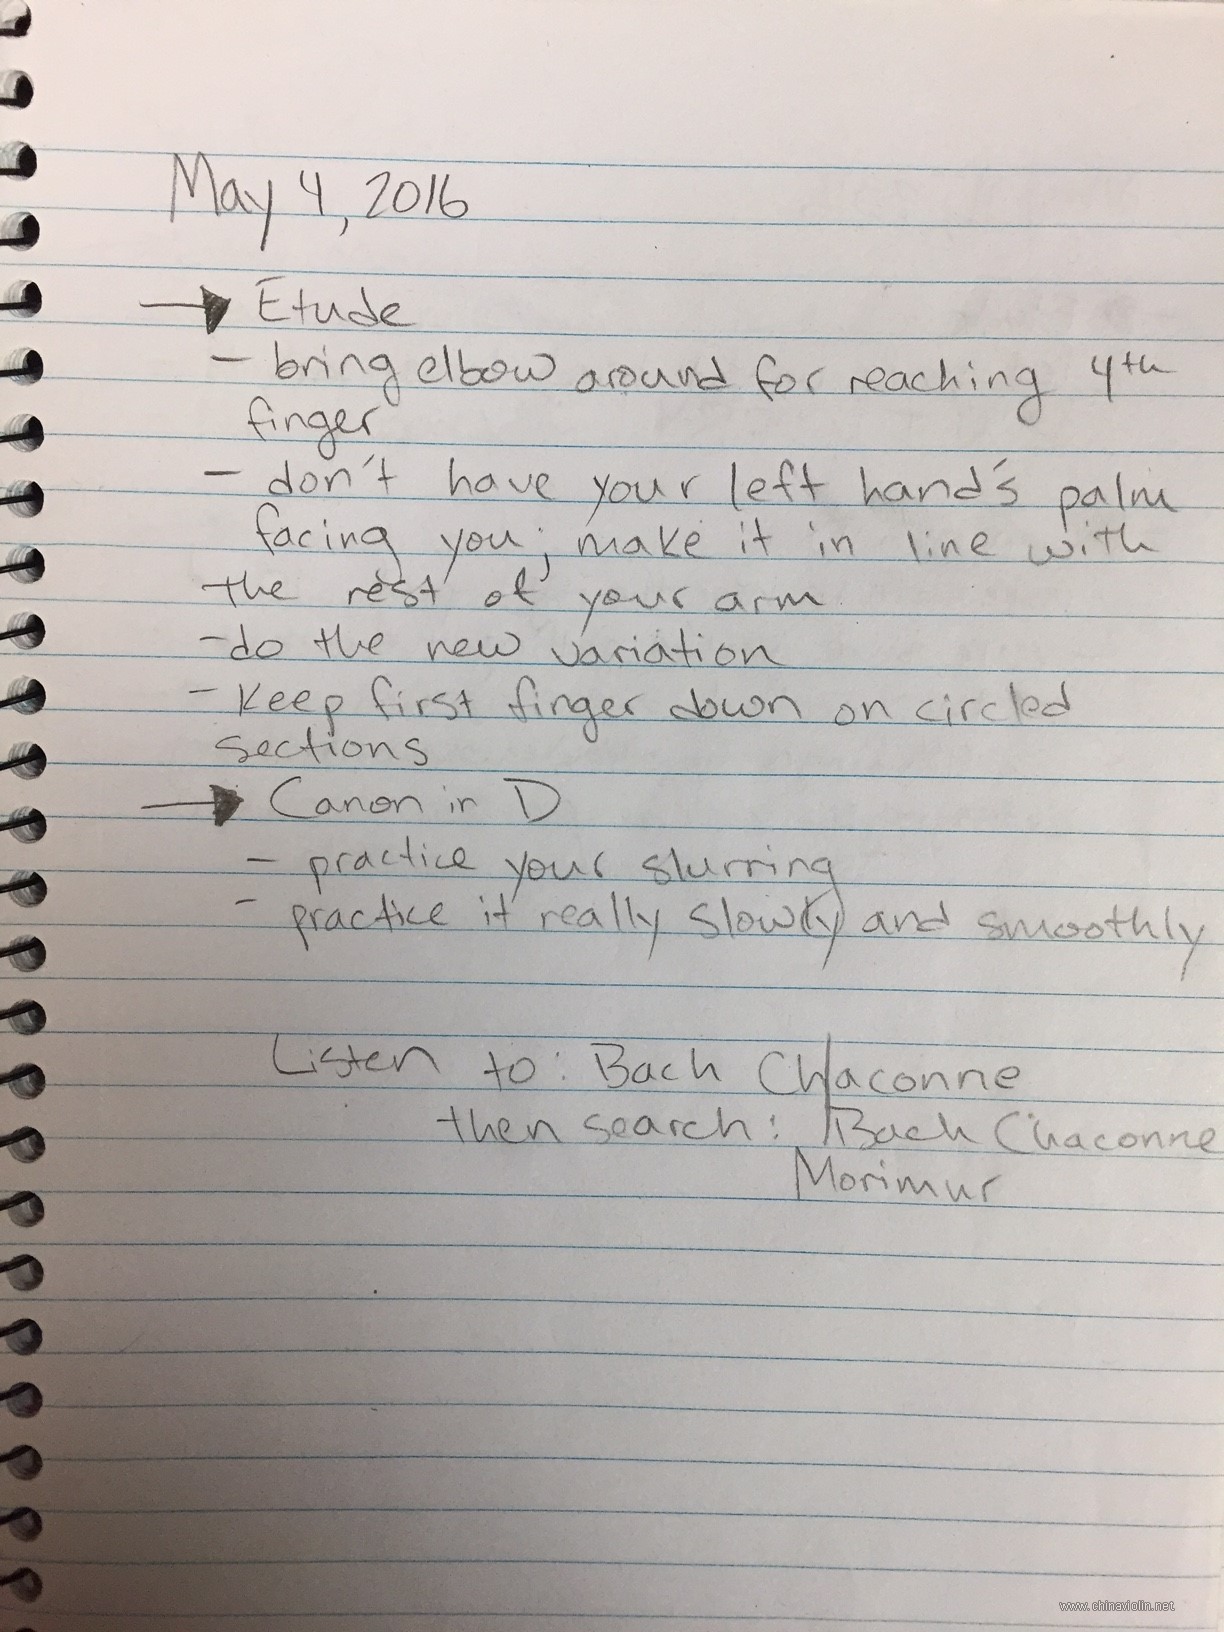 May 4, 2016
→ Etude
- bring elbow around for reaching 4th
finger
- don't have your left hand's palm
facing you; make it in line with
the rest of your arm
- do the new variation
- Keep first finger down on circled
sections
→ Canon in D
- practice your slurring
- practice it really slowly and smoothly
Listen to: Bach Chaconne
then search: Bach Chaconne
Morimur
www.chinaviolin.net